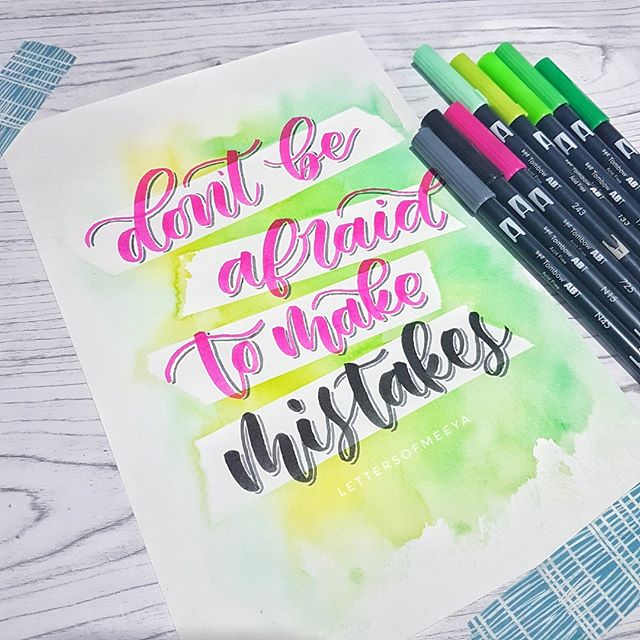 don't be
afraid
to make
mistakes
LETTERSOFMEEYA
Tombow ABT
Tombow ABT
Tombow ABT
Tombow ABT
243
133
725
N15
N45